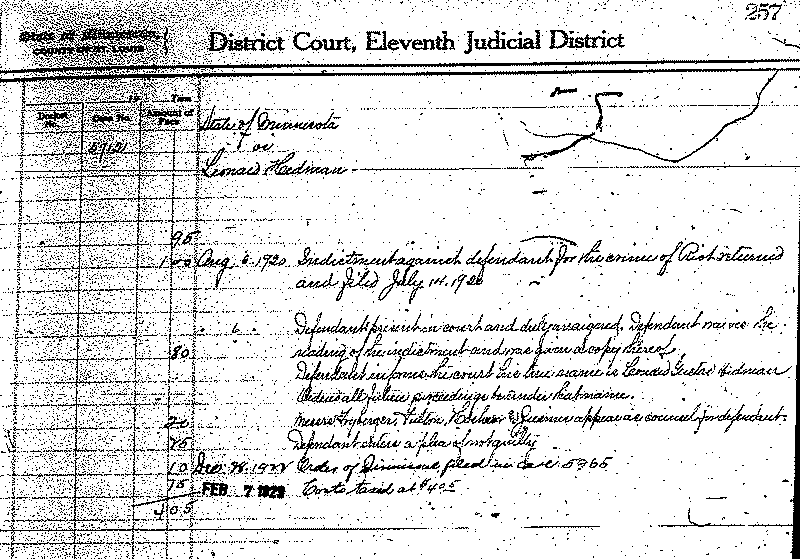 257
State of Minnesota,
COUNTY OF ST. LOUIS
District Court, Eleventh Judicial District
Docket No.
Case No.
Amount of Fees
State of Minnesota
vs
Leonard Hedman
95
1 00 Aug. 6. 1920 Indictment against defendant for the crime of Riot returned
and filed July 14. 1920
" 6 . Defendant present in court and duly arraigned. Defendant waives the
80 reading of the indictment and was given a copy thereof.
Defendant informs the court his true name is Leonard Gustav Hedman
Ordered all future proceedings be under that name.
20 Messrs Fryberger, Fulton, & appear as counsel for defendant.
75 Defendant enters a plea of not guilty
10 Dec. 28. 1922 Order of Dismissal filed in case 5965
75 FEB 7 1923 Costs taxed at $4.05
4 05